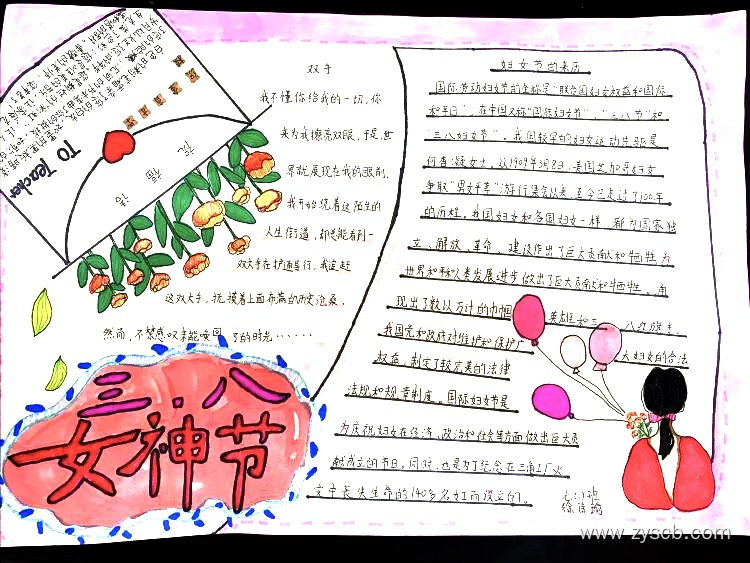 To Teacher
祝福语
双手
我不懂你给我的一切,你
来为我擦亮双眼,于是,世
界就展现在我的眼前.
我开始绕着这陌生的
人生街道,却总能看到一
双大手在护通导行,我追赶
这双大手,抚摸着上面布满的历史沧桑,
然而,不禁感叹未能唤回了的时光······
三.八
女神节
妇女节的来历
国际劳动妇女节的全称是"联合国妇女权益和国际
和平日",在中国又称"国际妇女节"、"三八节"和
"三八妇女节"。我国较早的妇女运动先驱是
何香凝女士,从1909年3月8日,美国芝加哥妇女
争取"男女平等"游行集会以来,至今已走过了100年
的历程,我国妇女和各国妇女一样,都为国家独
立、解放、革命、建设作出了巨大贡献和牺牲,为
世界和平和人类发展进步做出了巨大贡献和牺牲。涌
现出了数以万计的巾帼英雄和三八红旗手。
我国党和政府对维护和保护广大妇女的合法
权益,制定了较完美的法律
法规和规章制度。国际妇女节是
为庆祝妇女在经济、政治和社会等方面做出巨大贡
献成立的节日,同时,也是为了纪念在三角工厂火
灾中丧失生命的140多名女工而设立的。
www.zyscb.com